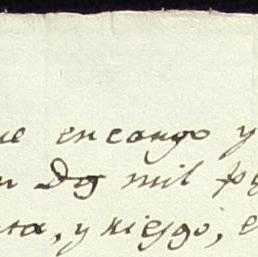 ue encargo y
n Dos mil p
ta, y riesgo, e